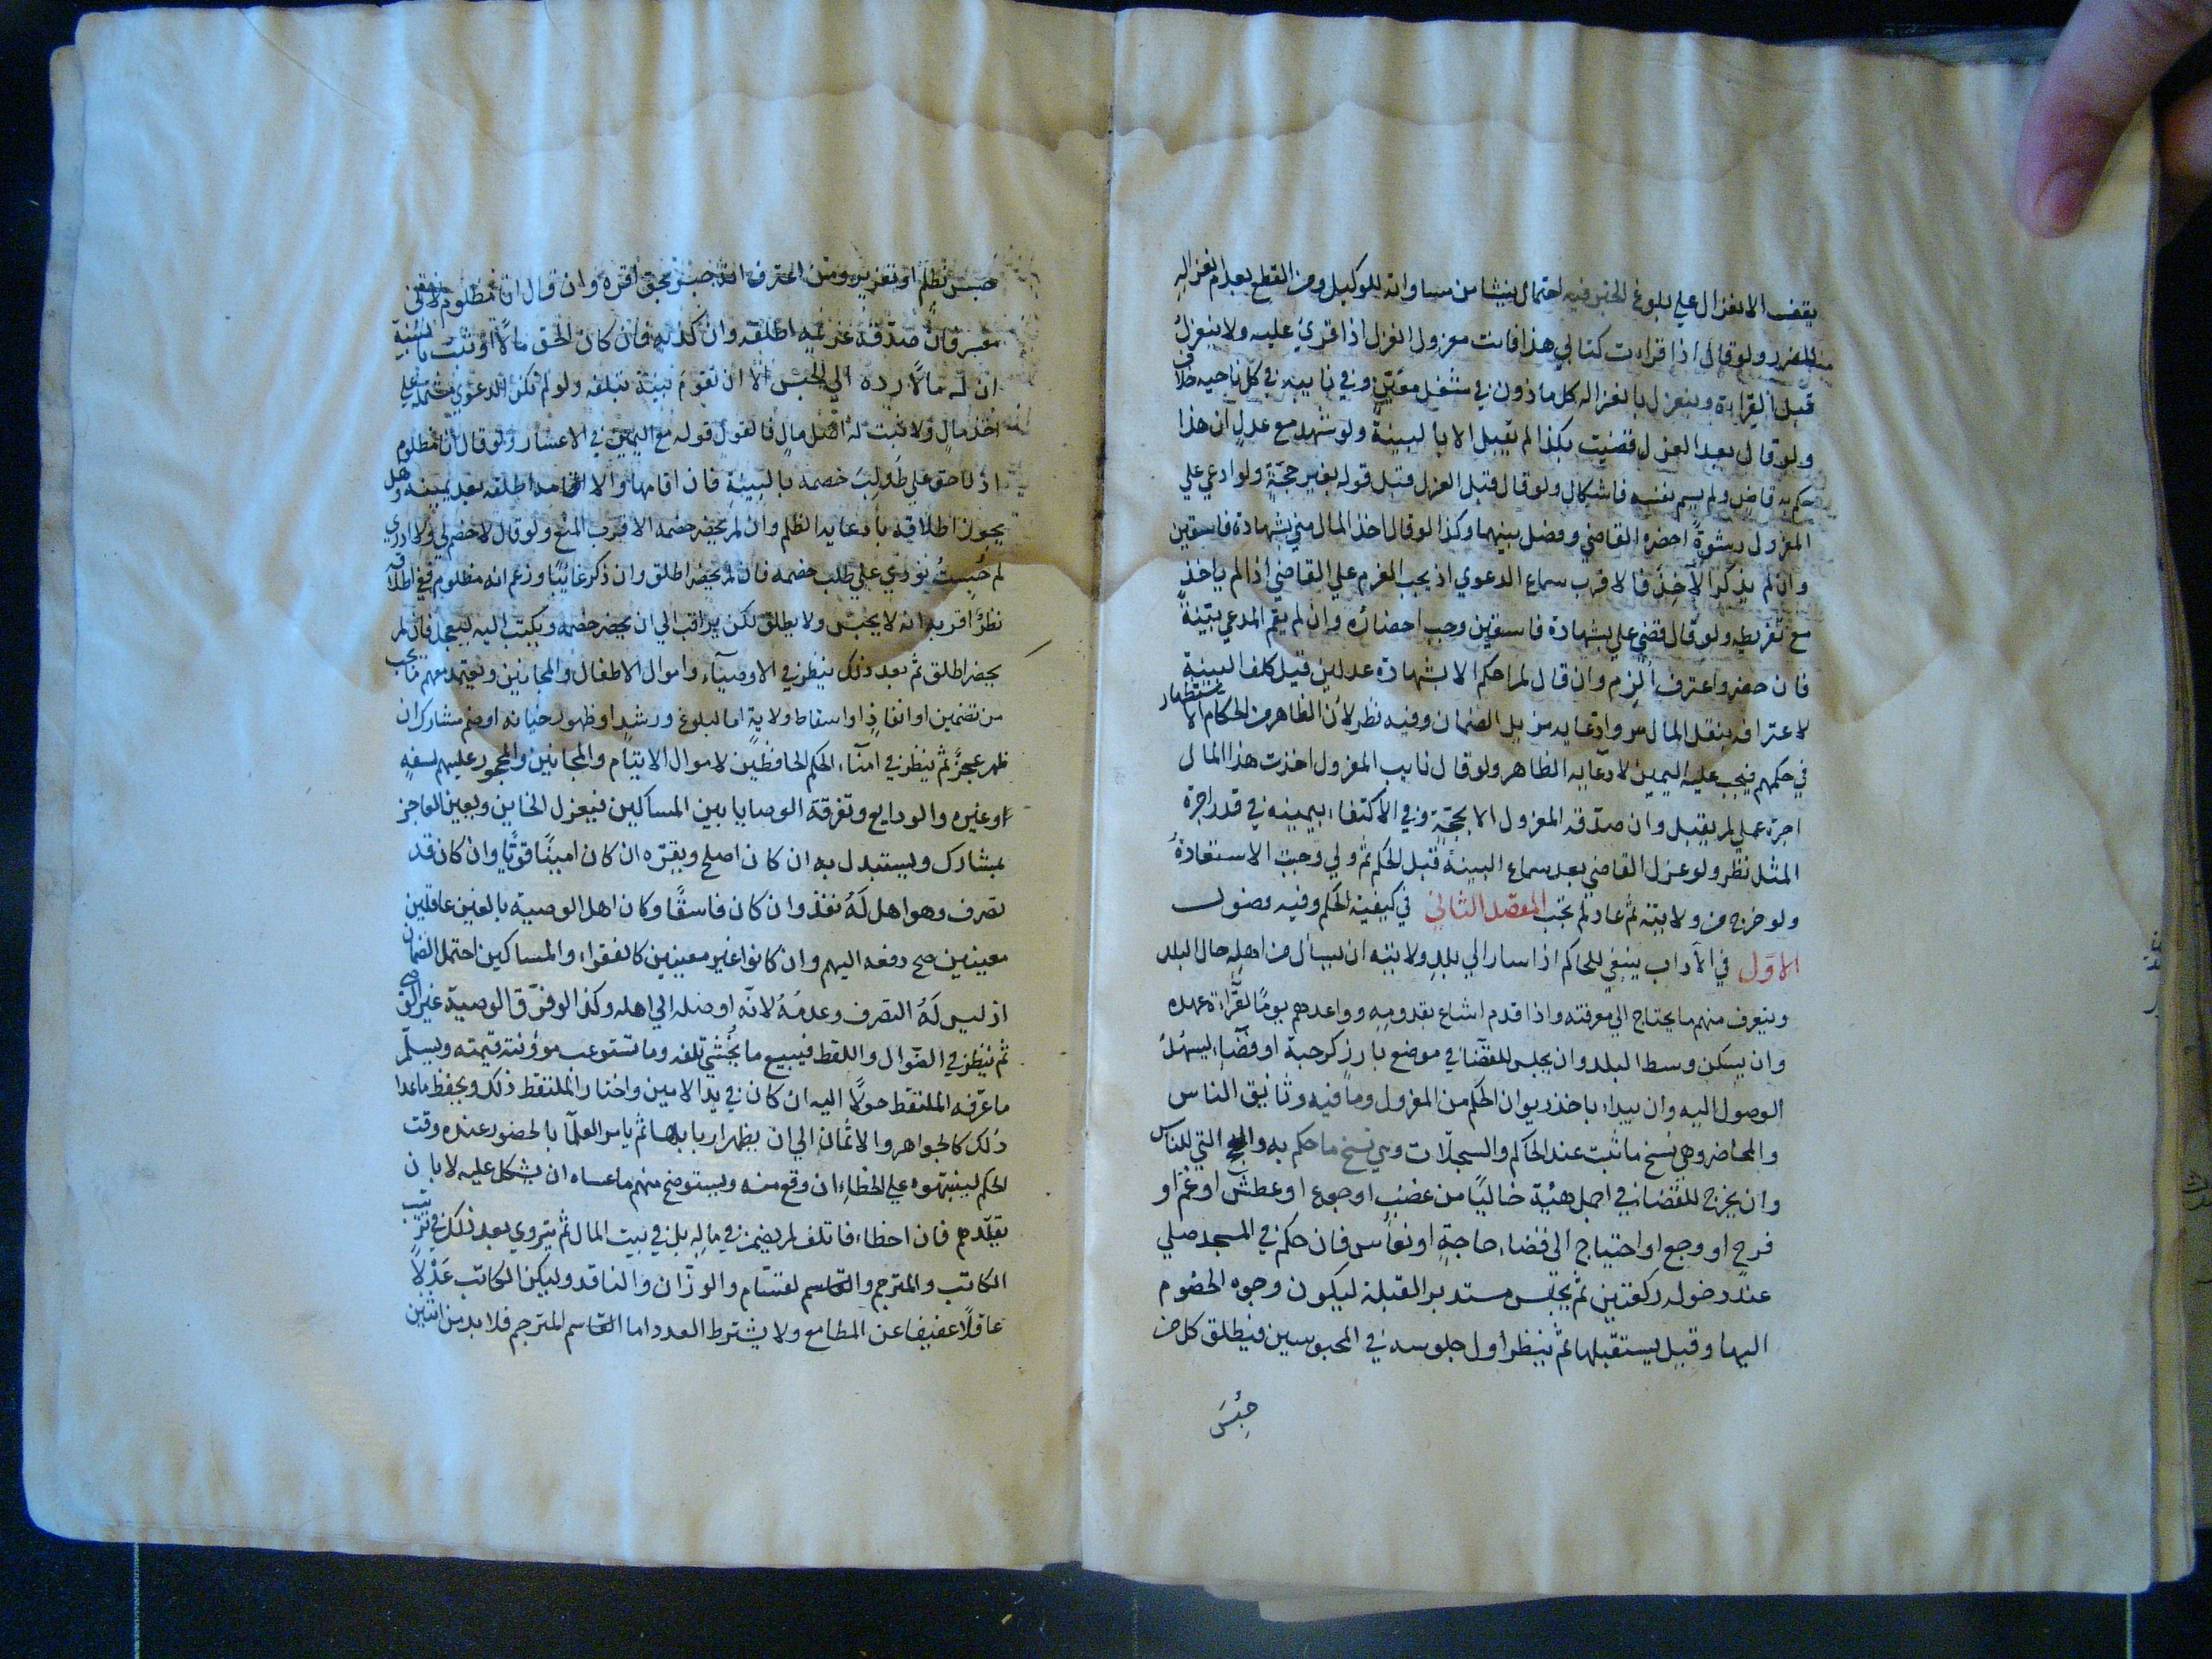 يقف الانعزال علي بلوغ الخبر فيه احتمال ينشا من مساواته للوكيل ومن القطع بعدم انعزاله
للضرر ولو قال اذا قرات كتابي هذا فانت معزول انعزل اذا قرئ عليه ولا ينعزل
قبل القراءة وينعزل بانعزاله كل ماذون في شغل معيّن وفي نايبه في كل ناحيه خلاف
ولو قال بعد العزل قضيت بكذا لم يقبل الا بالبينة ولو شهد مع عدل ان هذا
حكم به قاضٍ ولم يسم نفسه فاشكال ولو قال قبل العزل قبل قوله بغير حجّةٍ ولو ادعي علي
المعزول رشوةً احضره القاضي وفصل بينهما وكذا لو قال اخذ المال مني بشهادة فاسقين
وان لم يذكر الآخذ فالاقرب سماع الدعوي اذ يجب الغرم علي القاضي اذا لم ياخذ
مع تفريطه ولو قال قضي علي بشهادة فاسقين وجب احضاره وان لم يقم المدعي بيّنةً
فان حضر واعترف الزم وان قال لم احكم الا بشهادة عدلين قيل كلف البينة
لاعترافه بنقل المال وادّعايه مزيل الضمان وفيه نظر لان الظاهر من الحكام الاستظهار
في حكمهم فيجب عليه اليمين لادّعايه الظاهر ولو قال نايب المعزول اخذت هذا المال
اجرة عملي لم يقبل وان صدّقه المعزول الا بحجّةٍ وفي الاكتفاء بيمينه في قدر اجرة
المثل نظر ولو عزل القاضي بعد سماع البينة قبل الحكم ثم ولي وجبت الاستعادةُ
ولو خرج من ولايته ثم عاد لم تجب المقصد الثاني في كيفية الحكم وفيه فصول
الاول في الآداب ينبغي للحاكم اذا سار الي بلد ولايته ان يسأل من اهله حال البلد
ويتعرف منهم ما يحتاج الي معرفته واذا قدم اشاع بقدومه وواعدهم يومًا لقراءة عهده
وان يسكن وسط البلد وان يجلس للقضاء في موضع بارز كرحبة او فضاء ليسهلُ
الوصول اليه وان يبداء باخذ ديوان الحكم من المعزول وما فيه وثايق الناس
والمحاضر وهي نسخ ما ثبت عند الحاكم والسجلّات وهي نسخ ما حكم به والحجج التي للناس
وان يخرج للقضاء في اجمل هيئة خاليًا من غضبٍ او جوع او عطش او غمّ او
فرح او وجع او احتياج الي قضاء حاجةٍ او نعاس فان حكم في المسجد صلي
عند دخوله ركعتين ثم يجلس مستدبر القبلة ليكون وجوه الخصوم
اليها وقيل يستقبلها ثم ينظر اول جلوسه في المحبوسين فيطلق كل من
حبس
حبس بظلم او تعزير ومن اعترف انه حبس بحق اقره وان قال انا مظلوم لاني
معسر فان صدّقه غريمه اطلقه وان كذبه فان كان الحق مالًا او ثبت بالبيّنة
ان له مالًا رده الي الحبس الا ان تقوم بينة بتلفه ولو لم تكن الدعوي مشتملة علي
اخذ مالٍ ولا ثبت له اصل مالٍ فالقول قوله مع اليمين في الاعسار ولو قال انا مظلوم
اذ لا حق علي طولب خصمه بالبينة فان اقامها والا اطلقه بعد يمينه وهل
يجوز اطلاقه بادعايه الظلم وان لم يحضر خصمه الاقرب المنع ولو قال لا خصم لي ولا ادري
لم حُبستُ نودي علي طلب خصمه فان لم يحضر اطلق وان ذكر غائبًا وزعم انه مظلوم ففي اطلاقه
نظرٌ اقربه انه لا يحبس ولا يطلق لكن يراقب الي ان يحضر خصمه ويكتب اليه ليعجل فان لم
يحضر اطلق ثم بعد ذلك ينظر في الاوصياء واموال الاطفال والمجانين ويعتمد معهم ما يجب
من تضمين او انفاذٍ او اسقاط ولايةٍ اما لبلوغ ورشدٍ او ظهور خيانه او ضم مشارك ان
ظهر عجزٌ ثم ينظر في امناء الحكم الحافظين لاموال الايتام والمجانين والمحجور عليهم لسفهٍ
او غيره والودايع وتفرقة الوصايا بين المساكين فيعزل الخاين ويعين العاجز
بمشارك ويستبدل به ان كان اصلح ويقرّه ان كان امينًا قويًّا وان كان قد
تصرف وهو اهل لهُ نفذ وان كان فاسقًا وكان اهل الوصية بالغين عاقلين
معينين صح دفعه اليهم وان كانوا غير معينين كالفقراء والمساكين احتمل الضمان
اذ ليس لهُ التصرف وعدمهُ لانه اوصله الي اهله وكذا لو فرّق الوصية غير الوصي
ثم ينظر في الضوال واللقط فيبيع ما يُخشي تلفه وما تستوعب موؤنته قيمته ويسلّم
ما عرّفه الملتقط حولًا اليه ان كان في يد الامين واختار الملتقط ذلك ويحفظ ما عدا
ذلك كالجواهر والاثمان الي ان يظهر اربابها ثم يامر العلماء بالحضور عنده وقت
الحكم لينبّهوه علي الخطاءِ ان وقع منه ويستوضح منهم ما عساه ان يشكل عليه لا بان
يقلّدهم فان اخطاء فاتلف لم يضمن في ماله بل في بيت المال ثم يتروي بعد ذلك في ترتيب
الكاتب والمترجم والقاسم لقسام والوزّان والناقد وليكن الكاتب عدلًا
عاقلًا عفيفا عن المطامع ولا يشترط العدد اما القاسم المترجم فلا بد من اثنين